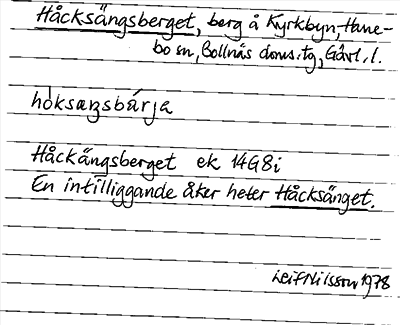 Håcksängsberget, berg å Kyrkbyn, Hane-
bo sn, Bollnäs doms.tg, Gävl. l.
hòksæŋsbárja
Håckängsberget ek 14G8i
En intilliggande åker heter Håcksänget.
Leif Nilsson 1978